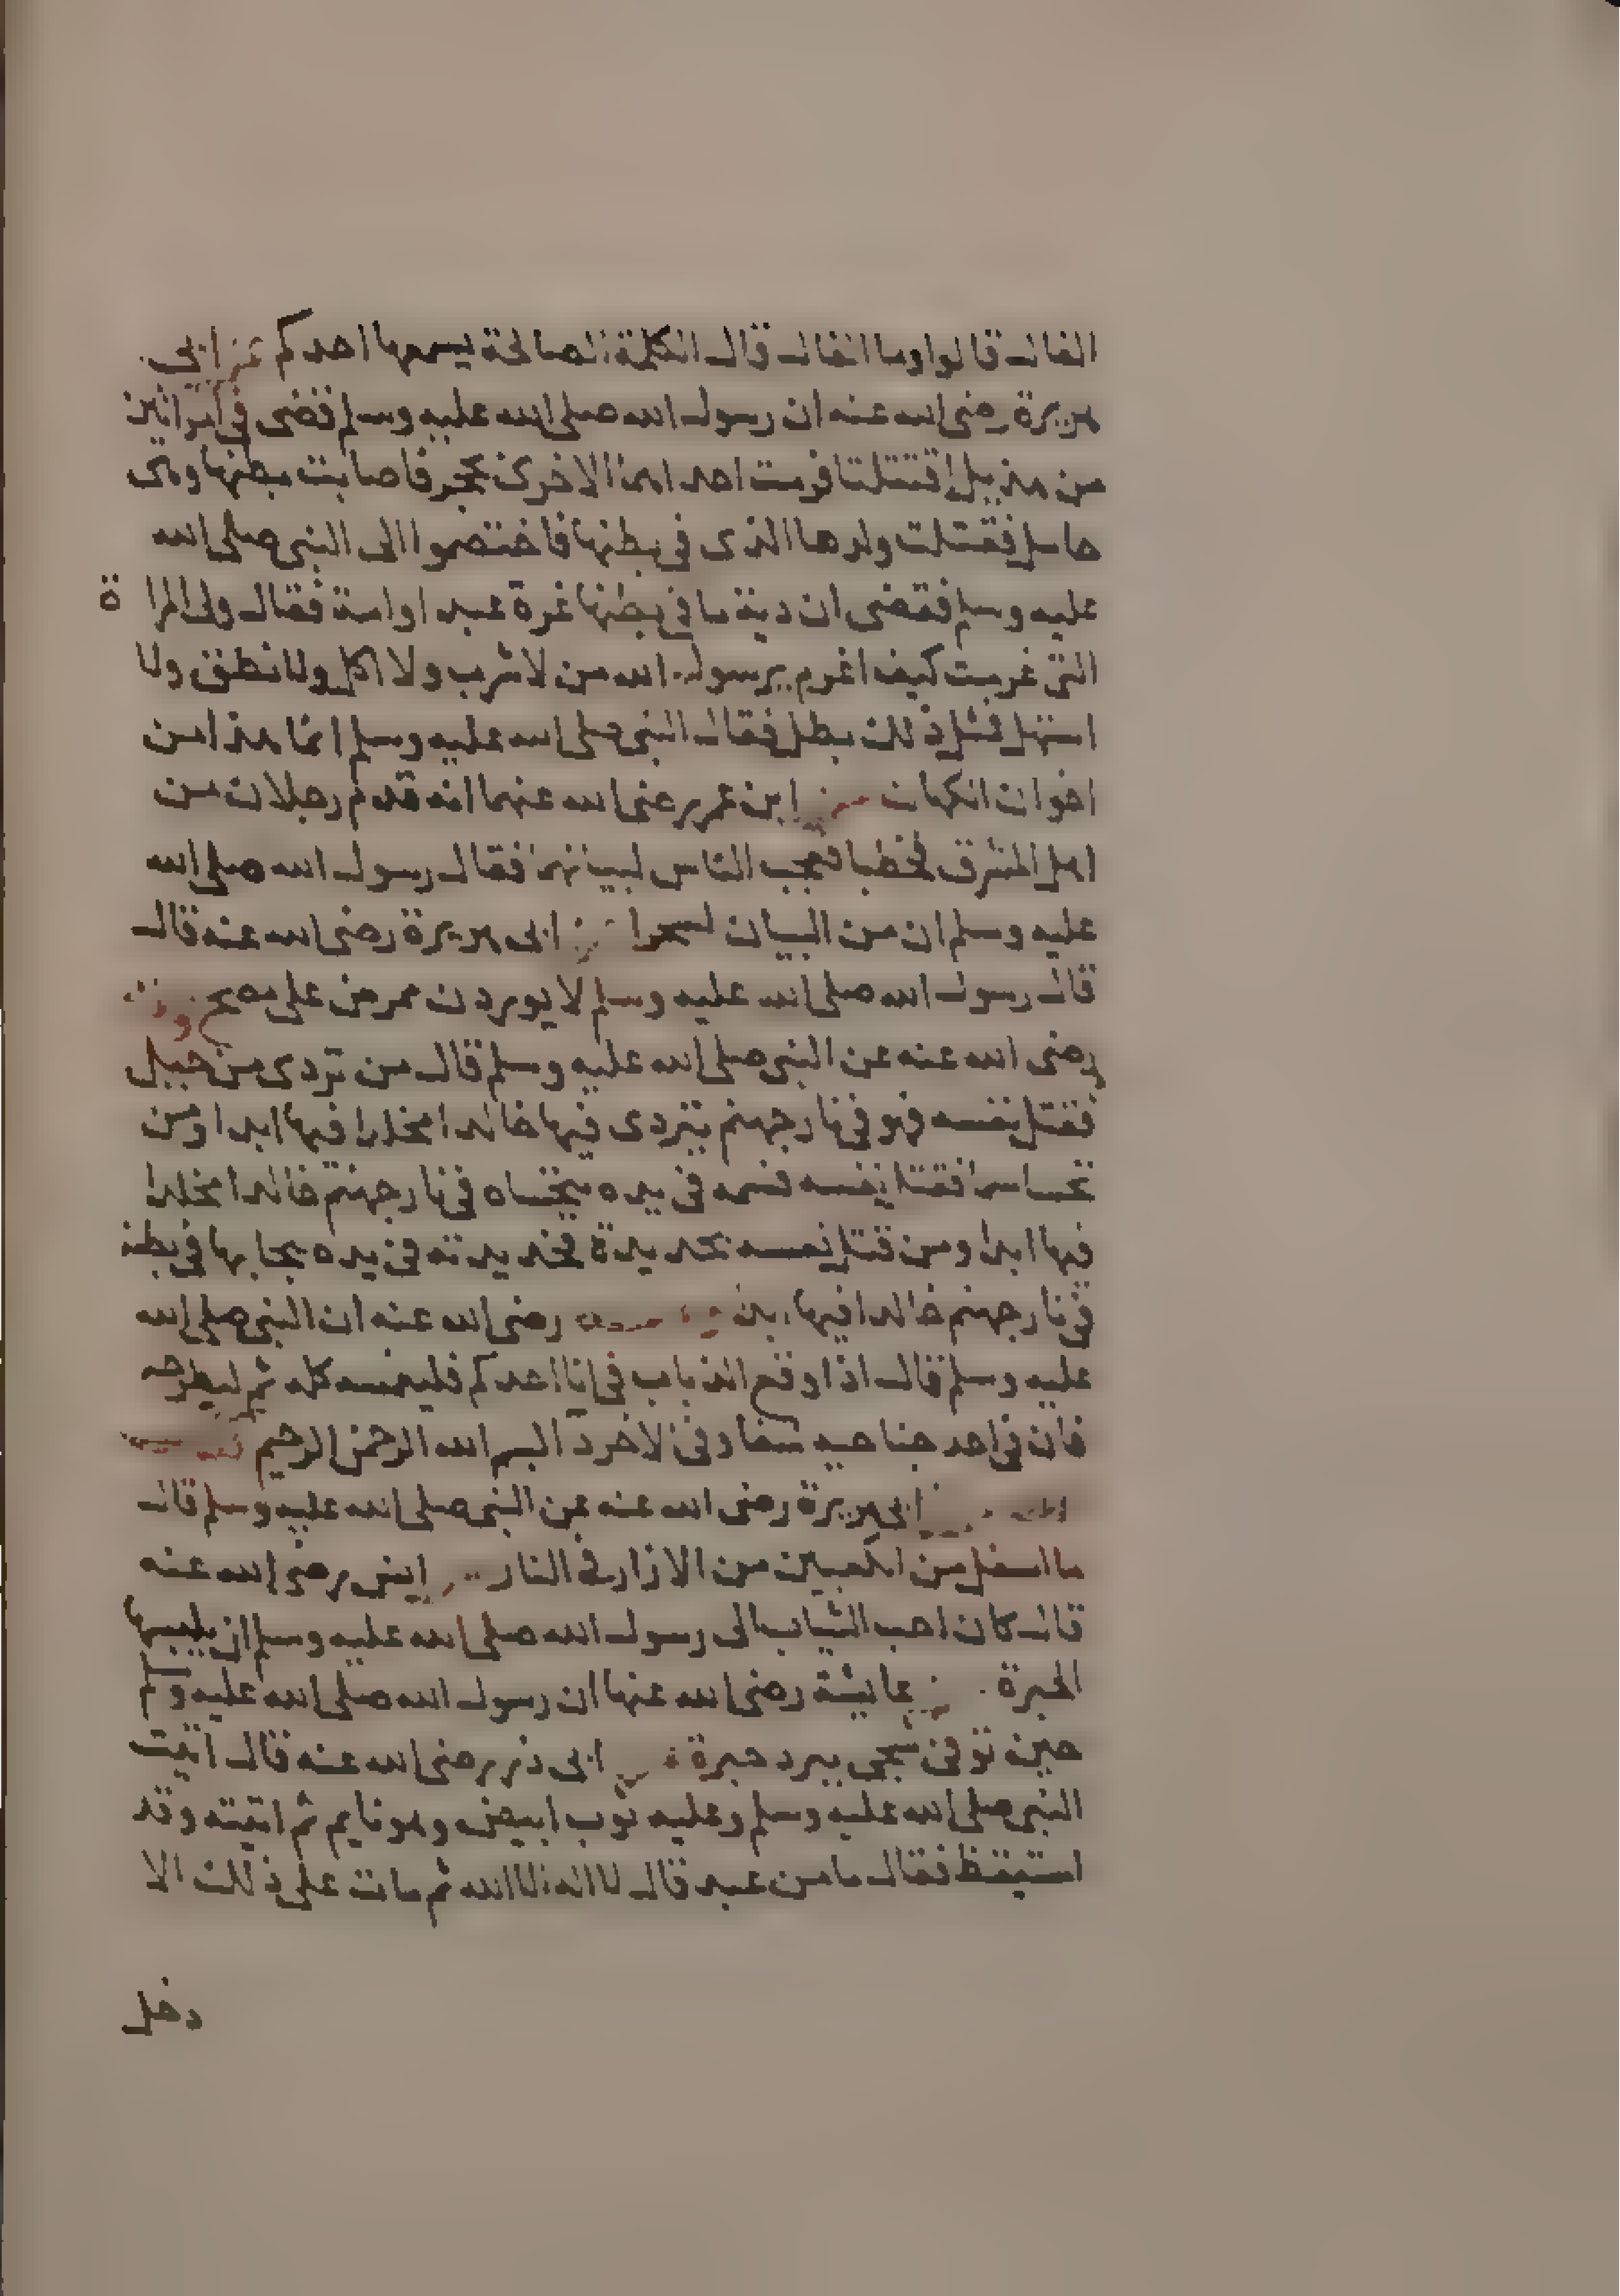 الفال قالوا وما الفال قال الكلمة الصالحة يسمعها احدكم عن ابى
هريرة رضى الله عنه ان رسول الله صلى الله عليه وسلم قضى فى امراتين
من هذيل اقتتلتا فرمت احداهما الاخرى بحجر فاصابت بطنها وهى
حامل فقتلت ولدها الذى فى بطنها فاختصموا الى النبى صلى الله
عليه وسلم فقضى ان دية ما فى بطنها غرة عبد او امة فقال ولى المراة
التى غرمت كيف اغرم يرسول الله من لا شرب ولا اكل ولا نطق ولا
استهل فمثل ذلك بطل فقال النبى صلى الله عليه وسلم انما هذا من
اخوان الكهان عن ابن عمر رضى الله عنهما انه قدم رجلان من
اهل المشرق فخطبا فعجب الناس لبيانهما فقال رسول الله صلى الله
عليه وسلم ان من البيان لسحرا عن ابى هريرة رضى الله عنه قال
قال رسول الله صلى الله عليه وسلم لا يوردن ممرض على مصح وعنه
رضى الله عنه عن النبى صلى الله عليه وسلم قال من تردى من جبل
فقتل نفسه فهو فى نار جهنم يتردى فيها خالدا مخلدا فيها ابدا ومن
تحسا سما فقتل نفسه فسمه فى يده يتحساه فى نار جهنم خالدا مخلدا
فيها ابدا ومن قتل نفسه بحديدة فحديدته فى يده يجا بها فى بطنه
فى نار جهنم خالدا فيها ابدا رضى الله عنه ان النبى صلى الله
عليه وسلم قال اذا وقع الذباب فى انا احدكم فليغمسه كله ثم ليطرحه
فان فى احد جناحيه شفا وفى الاخر دا بسم الله الرحمن الرحيم
ابى هريرة رضى الله عنه عن النبى صلى الله عليه وسلم قال
ما اسفل من الكعبين من الازار فى النار عن انس رضى الله عنه
قال كان احب الثياب الى رسول الله صلى الله عليه وسلم ان يلبسها
الحبرة عن عايشة رضى الله عنها ان رسول الله صلى الله عليه وسلم
حين توفى سجى ببرد حبرة عن ابى ذر رضى الله عنه قال اتيت
النبى صلى الله عليه وسلم وعليه ثوب ابيض وهو نايم ثم اتيته وقد
استيقظ فقال ما من عبد قال لا اله الا الله ثم مات على ذلك الا
دخل